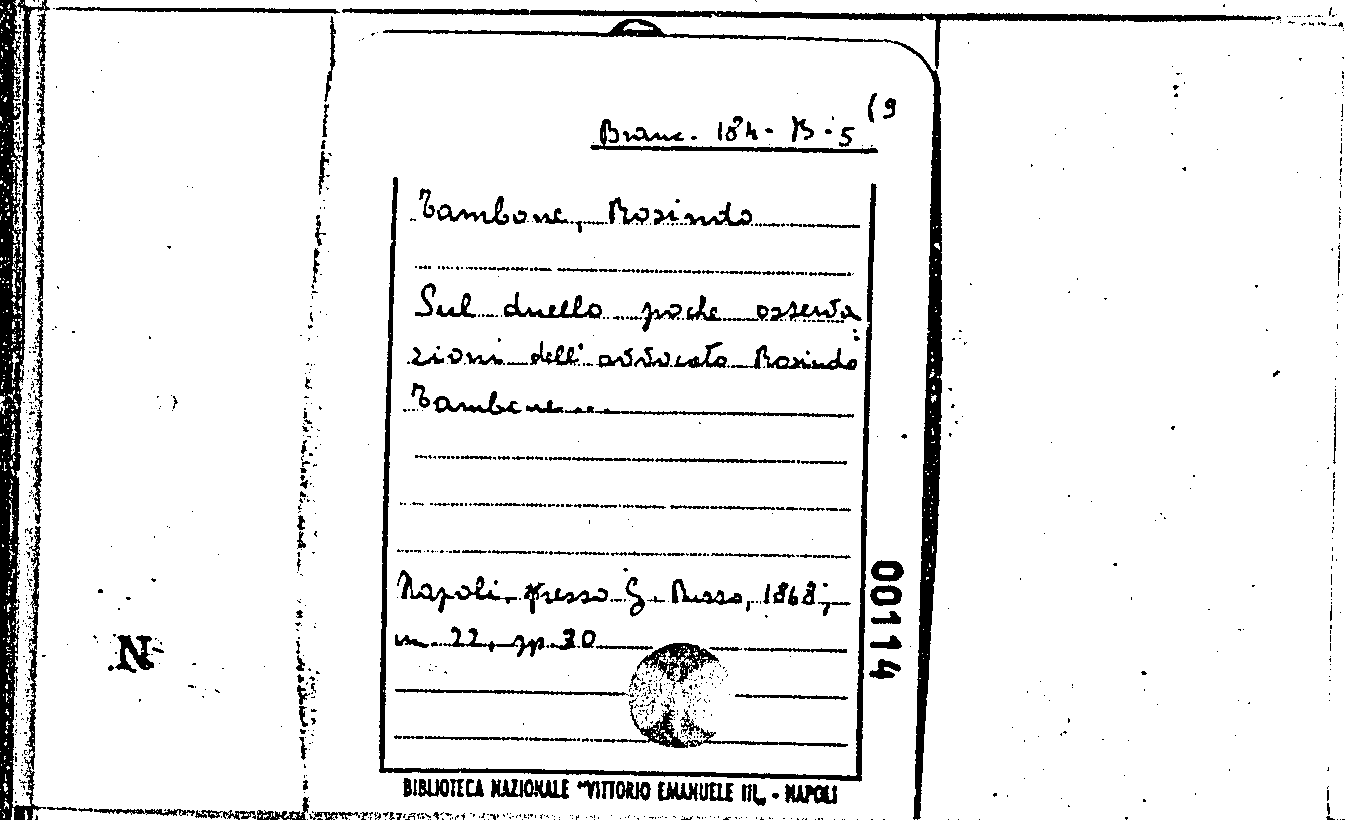 Branc. 184-B-5 (9
Tambone, Rosindo
Sul duello poche osserva
zioni dell'avvocato Rosindo
Tambone...
Napoli, presso G. Russo, 1868;
m. 22, pp. 30
00114
N
BIBLIOTECA NAZIONALE "VITTORIO EMANUELE III„ - NAPOLI